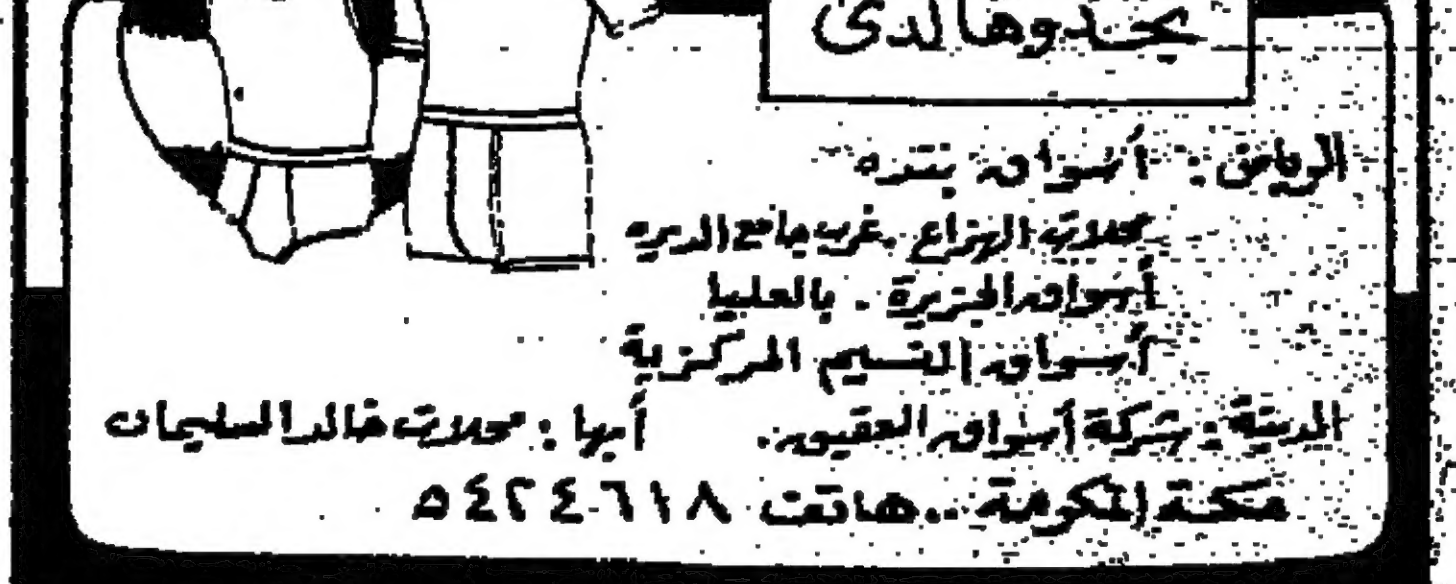 يجدوها لدى
الرياض: أسواق بنده
محلات الهزاع. غرب جامع الديره
أسواق الجزيرة. بالعليا
أسواق النسيم المركزية
المدينة: شركة أسواق العقيق. أبها: محلات خالد السليمان
مكة المكرمة.. هاتف ٥٤٢٤٦١٨